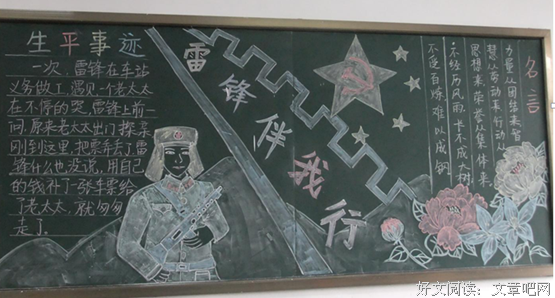 生平事迹
一次,雷锋在车站
义务做工,遇见一个老太太
在不停的哭,雷锋上前
问,原来老太太出门探亲
刚到这里,把票弄丢了雷
锋什么也没说,用自己
的钱补了一张车票给
了老太太,就匆匆
走了.
雷锋伴我行
名言
力量从团结来智
慧从劳动来行动从
思想来荣誉从集体来
不经历风雨长不成大树
不逢百炼难以成钢
好文阅读:文章吧网